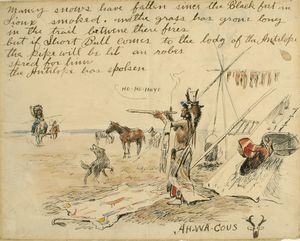 Many snows have fallen since the Black feet an
Sioux smoked. and the grass has grone long
in the trail betwene there fires
but if Short Bull comes to the lodg of the Antilope
the pipe will be lit an robes
spred for him
the Antilope has spoken
HO-HO-HOYE
AH-WA-COUS